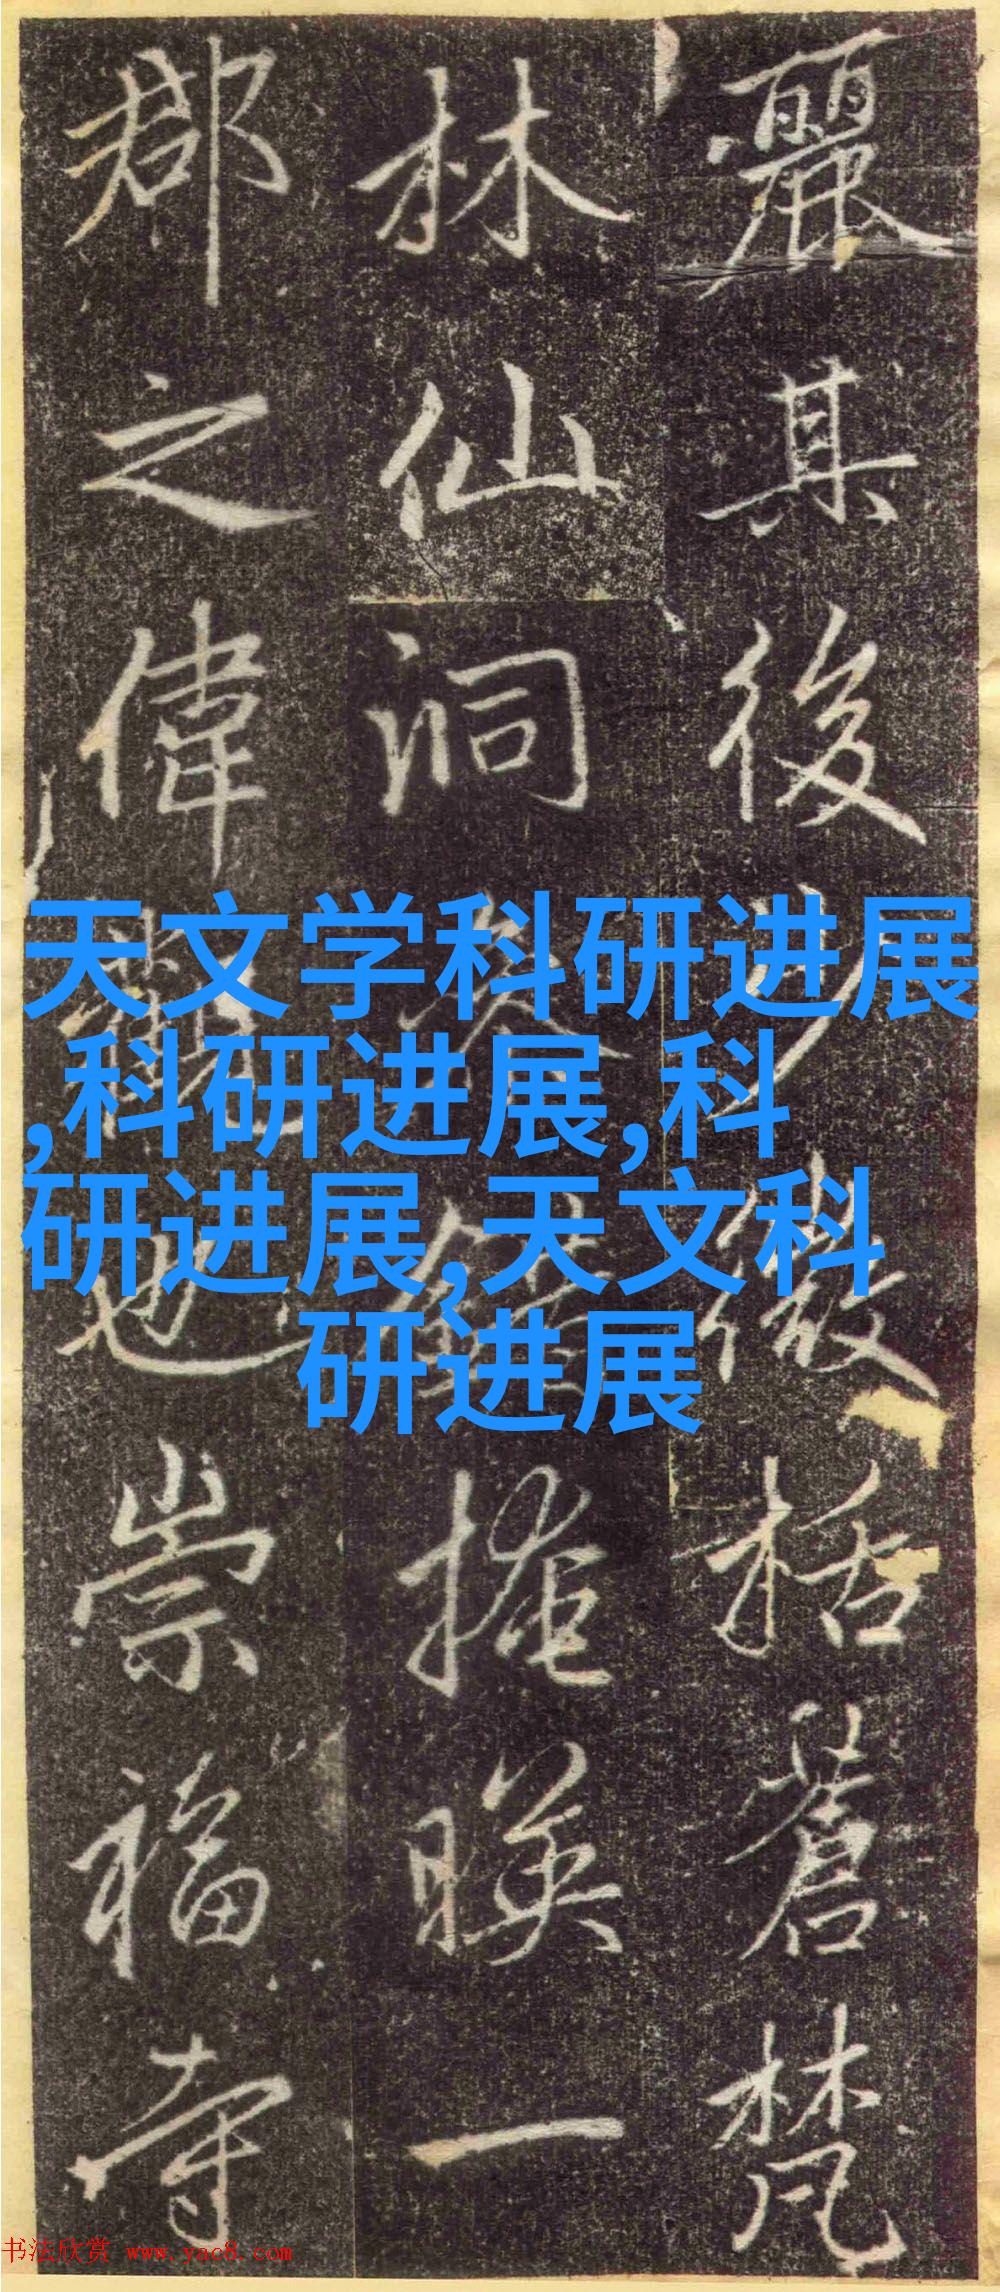 麗其後
括蒼梵
林仙洞
掩暎一
郡之偉
也崇福寺
天文学科研进展
,科研进展,科
研进展,天文科
研进展
书法欣赏 www.yac8.com